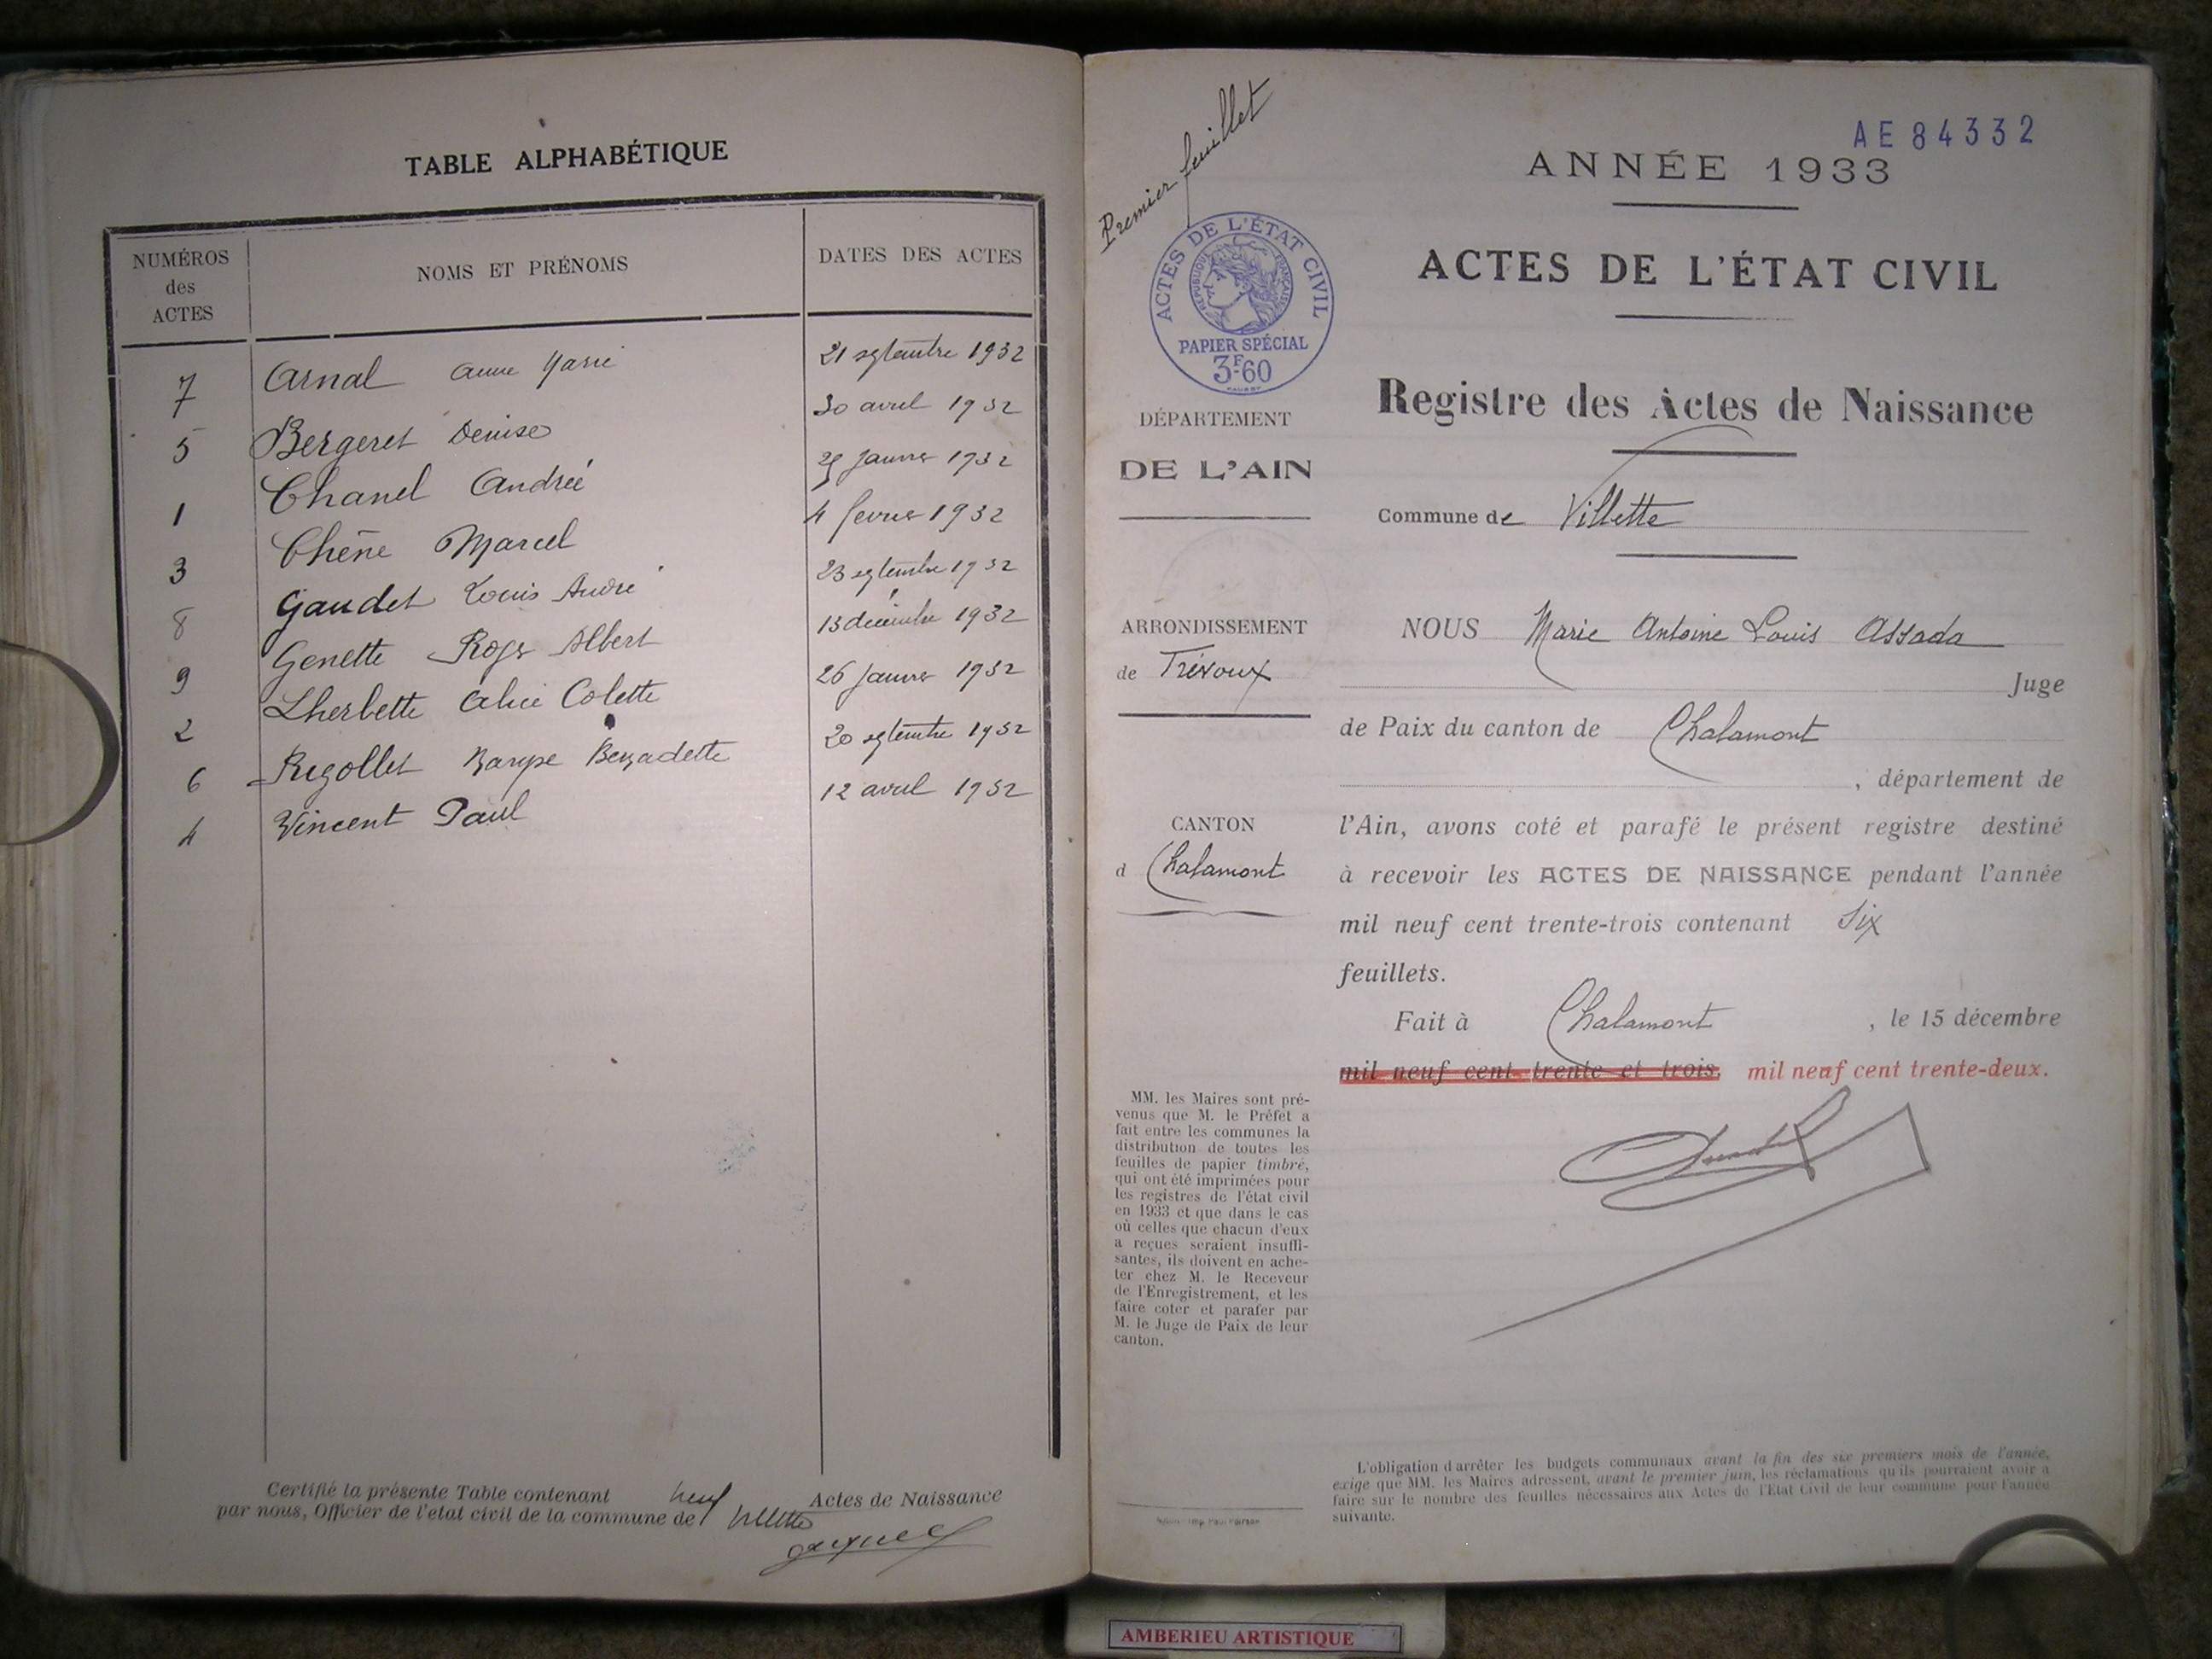 TABLE ALPHABÉTIQUE
NUMÉROS des ACTES
NOMS ET PRÉNOMS
DATES DES ACTES
7 Arnal Anne Marie 21 septembre 1932
5 Bergeret Denise 30 avril 1932
1 Chanel Andrée janvier 1932
3 Chêne Marcel 4 fevrier 1932
8 Gaudet Louis André 23 septembre 1932
9 Genette Roger Albert 13 décembre 1932
2 Lherbette Alice Colette 26 janvier 1932
6 Rigollet Bernadette 20 septembre 1932
4 Vincent Paul 12 avril 1932
Certifié la présente Table contenant neuf Actes de Naissance
par nous, Officier de l'etat civil de la commune de Villette
Premier feuillet
AE 84332
ANNÉE 1933
ACTES DE L'ÉTAT CIVIL
ACTES DE L'ÉTAT CIVIL
RÉPUBLIQUE FRANÇAISE
PAPIER SPÉCIAL
3F.60
Registre des Actes de Naissance
DÉPARTEMENT
DE L'AIN
Commune de Villette
ARRONDISSEMENT
de Trévoux
CANTON
d Chalamont
NOUS Marie Antoine Louis Assada
Juge
de Paix du canton de Chalamont
, département de
l'Ain, avons coté et parafé le présent registre destiné
à recevoir les ACTES DE NAISSANCE pendant l'année
mil neuf cent trente-trois contenant Six
feuillets.
Fait à Chalamont , le 15 décembre
mil neuf cent trente et trois. mil neuf cent trente-deux.
MM. les Maires sont pré-
venus que M. le Préfet a
fait entre les communes la
distribution de toutes les
feuilles de papier timbré,
qui ont été imprimées pour
les registres de l'état civil
en 1933 et que dans le cas
où celles que chacun d'eux
a reçues seraient insuffi-
santes, ils doivent en ache-
ter chez M. le Receveur
de l'Enregistrement, et les
faire coter et parafer par
M. le Juge de Paix de leur
canton.
L'obligation d'arrêter les budgets communaux avant la fin des six premiers mois de l'année,
exige que MM. les Maires adressent, avant le premier juin, les réclamations qu'ils pourraient avoir à
faire sur le nombre des feuilles nécessaires aux Actes de l'Etat Civil de leur commune pour l'année
suivante.
AMBERIEU ARTISTIQUE